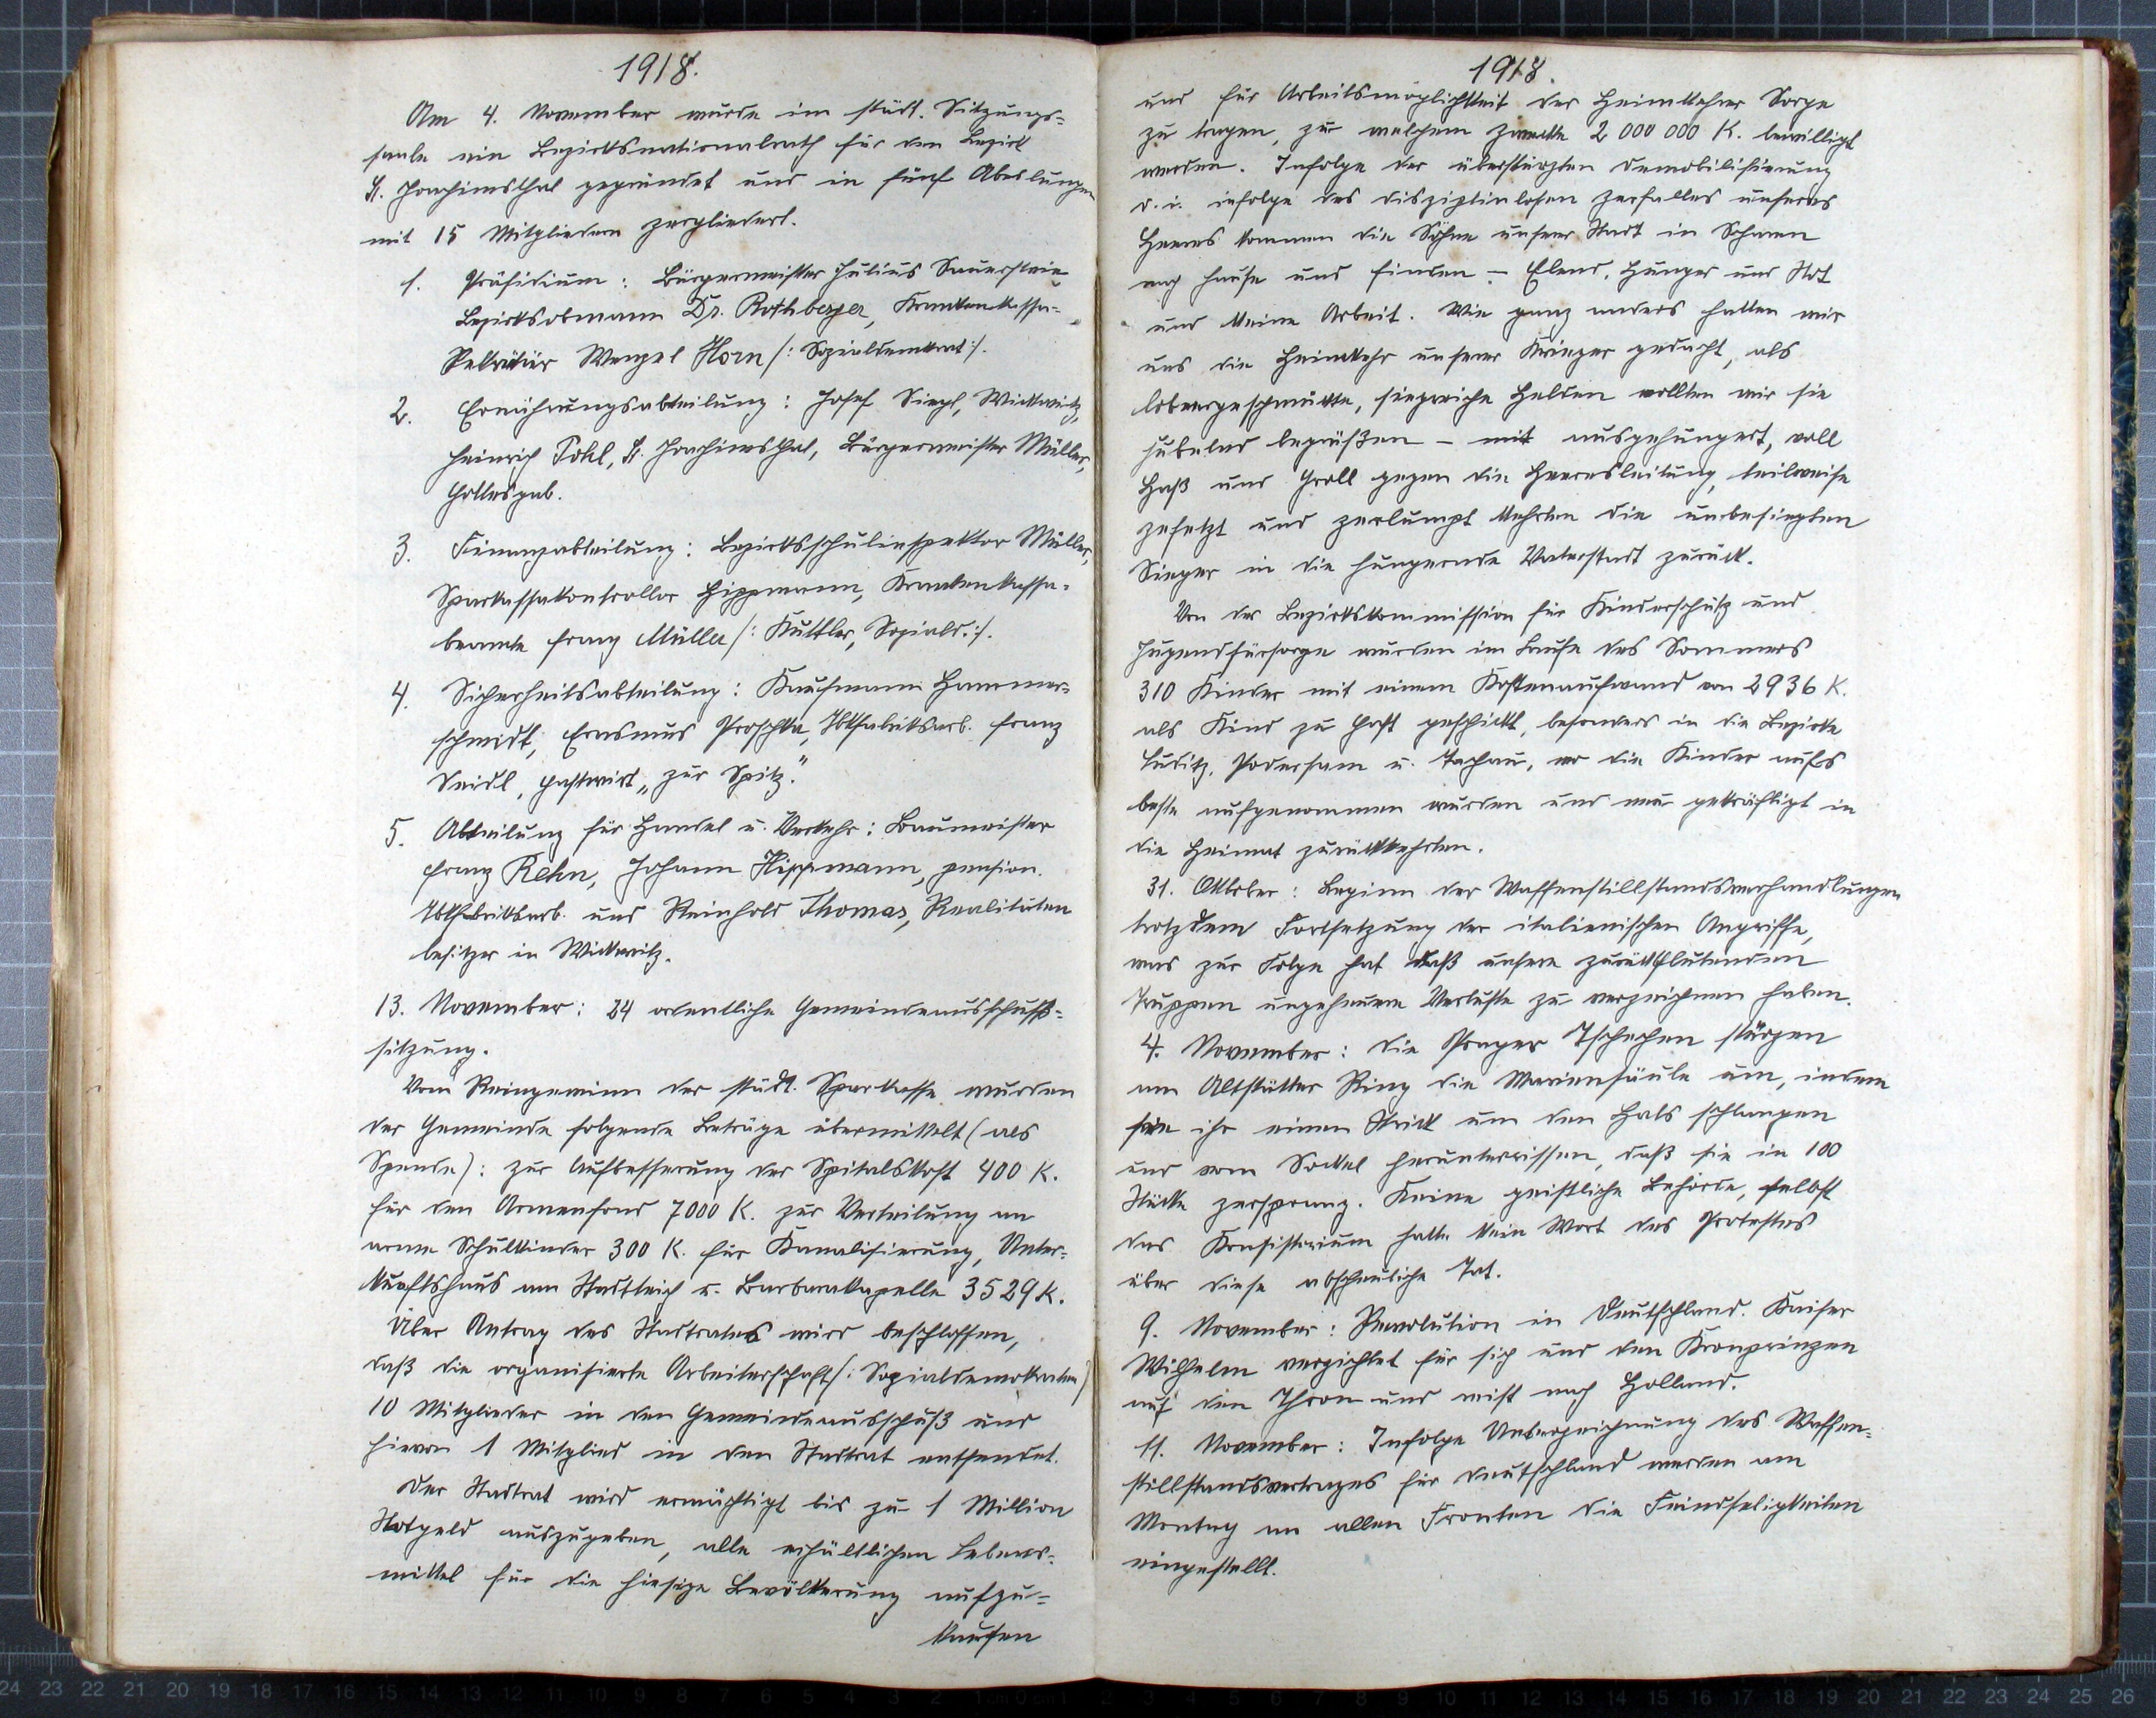 1918.
Am 4. November wurde im städt. Sitzungs=
saale ein Bezirksnationalrath für den Bezirk
St. Joachimsthal gegründet und in fünf Abeilungen
mit 15 Mitgliedern zergliedert.
1. Präsidium: Bürgermeister Julius Sauerstein
Bezirksobmann Dr. Rothberger, Krankenkassa=
Sekretär Wenzel Horn /: Sozialdemkrat :/.
2. Ernährungsabteilung: Josef Siegl, Wickwitz,
Heinrich Pohl, St. Joachimsthal, Bürgermeister Müller,
Gottesgab.
3. Finanzabteilung: Bezirksschulinspektor Müller,
Sparkassakontrollor Hippmann, Krankenkassa=
beamte Franz Müller /: Kuttler, Soziald. :/.
4. Sicherheitsabteilung: Kaufmann Hammer=
schmidt, Erasmus Proschka, Tbkfabriksarb. Franz
Seidl, Gastwirt „zur Spitz".
5. Abteilung für Handel u. Verkehr: Baumeister
Franz Rehn, Johann Hippmann, pension.
Tbkfabriksarb. und Reinhold Thomas, Realitäten
besitzer in Wickwitz.
13. November: 24 ordentliche Gemeindeausschuß=
sitzung.
Vom Reingewinn der städt. Sparkasse wurden
der Gemeinde folgende Beträge übermittelt (als
Spende): zur Aufbesserung der Spitalskost 400 K.
für den Armenfond 7000 K. zur Verteilung an
arme Schulkinder 300 K. für Kanalisierung, Unter=
kunftshaus am Stadtteich u. Barbarakapelle 3529 K.
Über Antrag des Stadtrates wird beschlossen,
daß die organisierte Arbeiterschaft /: Sozialdemokraten)
10 Mitglieder in den Gemeindeausschuß und
hievon 1 Mitglied in den Stadtrat entsendet.
Der Stadtrat wird ermächtigt bis zu 1 Million
Notgeld auszugeben, alle erhältlichen Lebens=
mittel für die hiesige Bevölkerung aufzu=
kaufen
1918.
und für Arbeitsmöglichkeit der Heimkehrer Sorge
zu tragen, zu welchem Zwecke 2 000 000 K. bewilligt
werden. Infolge der überstürzten Demobilisierung
d. i. infolge des disziplinlosen Zerfalles unseres
Heeres kommen die Söhne unserer Stadt in Scharen
nach Hause und finden – Elend, Hunger und Not
und keine Arbeit. Wie ganz anders hatten wir
uns die Heimkehr unserer Krieger gedacht, als
lobeergeschmückte, siegreiche Helden wollten wir sie
jubelnd begrüßen – mit ausgehungert, voll
Haß und Groll gegen die Heeresleitung, teilweise
zefetzt und zerlumpt kehrten die unbesiegten
Sieger in die hungernde Vaterstadt zurück.
Von der Bezirkskommission für Kinderschutz und
Jugendfürsorge wurden im Laufe des Sommers
310 Kinder mit einem Kostenaufwand von 2936 K.
als Kind zu Gast geschickt, besonders in die Bezirke
Luditz, Podersam u. Tachau, wo die Kinder aufs
beste aufgenommen wurden und neu gekräftigt in
die Heimat zurückkehrten.
31. Oktober: Beginn der Waffenstillstandsverhandlungen
trotzdem Fortsetzung der italienischen Angriffe,
was zur Folge hat daß unsere zurückflutenden
Truppen ungeheure Verluste zu verzeichnen haben.
4. November: Die Prager Tschechen stürzen
am Altstätter Ring die Mariensäule um, indem
sie ihr einen Strick um den Hals schlangen
und vom Sockel herunterrissen, daß sie in 100
Stücke zersprang. Keine geistliche Behörde, selbst
das Konsistorium hatte kein Wort des Protestes
über diese abscheuliche Tat.
9. November: Revolution in Deutschland. Kaiser
Wilhelm verzichtet für sich und den Kronprinzen
auf den Thron und reist nach Holland.
11. November: Infolge Unterzeichnung des Waffen=
stillstandsvertrages für Deutschland werden am
Montag an allen Fronten die Feindseligkeiten
eingestellt.
24 23 22 21 20 19 18 17 16 15 14 13 12 11 10 9 8 7 6 5 4 3 2 1 cm 0 cm 1 2 3 4 5 6 7 8 9 10 11 12 13 14 15 16 17 18 19 20 21 22 23 24 25 26